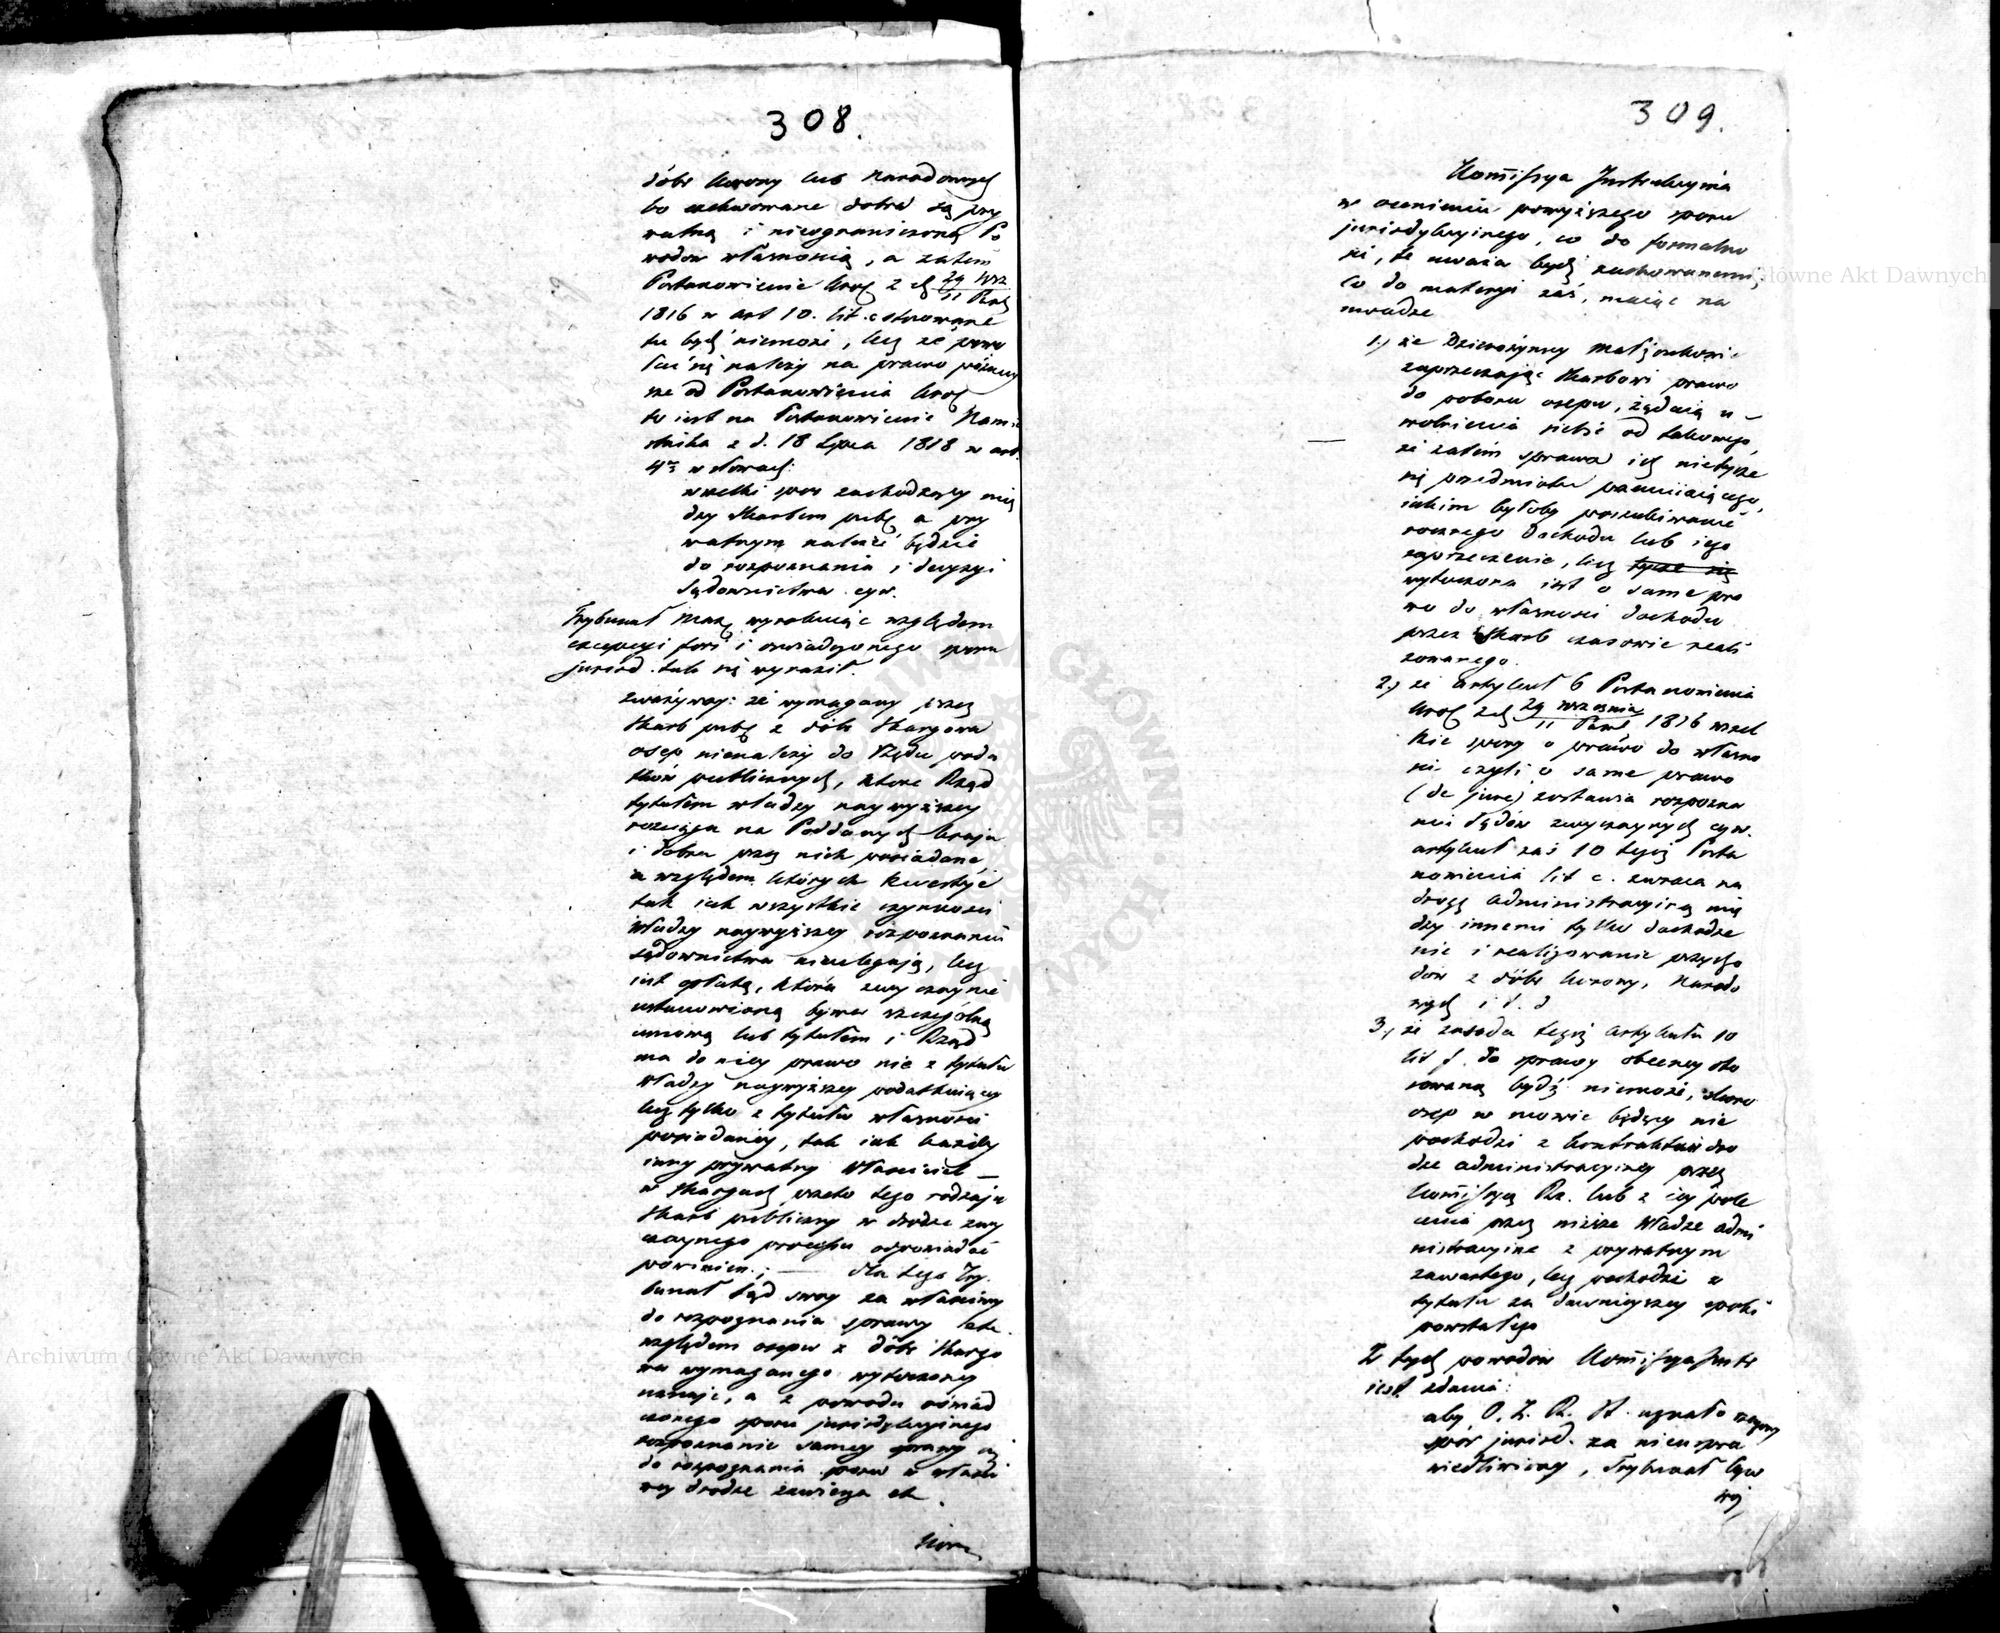 308.
dóbr Korony lub Narodowych
bo exekwowane dobra są pry
watną i nieograniczoną Po
wodów własnością, a zatem
Postanowienie Król z d 29 Wrz
11 Paźd
1816 w art 10. lit. c stosowane
tu bydź niemoże, lecz że powo
łać się należy na prawo późniey
sze od Postanowienia Król
to iest na Postanowienie Namie
stnika z d. 18 Lipca 1818 w art.
4m w słowach:
wszelki spor zachodzący mię
dzy Skarbem publ a pry
watnym należeć będzie
do rozpoznania i decyzyi
Sądownictwa cyw.
Trybunał Maz wyrokuiąc względem
excepcyi fori i oświadczonego sporu
jurisd. tak się wyraził.
zważywszy: że wymagany przez
Skarb publ z dóbr Skargowa
osep nienależy do Rzędu poda
tków publicznych, które Rząd
tytułem władzy naywyższey
rozciąga na Poddanych kraju
i dobra przez nich posiadane,
a względem których kwestye
tak iak wszystkie czynności
Władzy naywyższey rozpoznaniu
sądownictwa nieulegają, lecz
iest opłatą, która zwyczaynie
ustanowioną bywa szczególną
umową lub tytułem i Rząd
ma do niey prawo nie z tytułu
Władzy naywyższey podatkuiącey
lecz tylko z tytułu własności
posiadaney, tak iak każdy
inny prywatny Właściciel —
w Skargach przeto tego rodzaju
Skarb publiczny w drodze zwy
czaynego processu odpowiadać
powinien.; — dla tego Try
bunał Sąd swoy za właściwy
do rozpoznania sprawy etc.
względem osepu z dóbr Skargo
wa wymaganego wytoczoney
uznaje, a z powodu oświad
czonego sporu jurisdykcyinego
rozpoznanie samey sprawy aż
do rozpoznania sporu w właści
wey drodze zawiesza etc.
Kom
309.
Kommissya Instrukcyina
w ocenieniu powyższego sporu
jurisdykcyinego, co do formalno
ści, te uważa bydź zachowanemi,
co do materyi zaś, maiąc na
uwadze
1.) że Dzierożyńscy Małżonkowie
zaprzeczając Skarbowi prawo
do poboru osepu, żądaią u-
wolnienia siebie od takowego,
że zatem sprawa ich nietycze
się przedmiotu przemiiaiącego,
iakim byłoby poszukiwanie
rocznego dochodu lub iego
zaprzeczenie, lecz tycze się
wytoczona iest o same pra
wo do własności dochodu
przez Skarb czasowie reali
zowanego.
2.) że artykuł 6 Postanowienia
Król z d 29 września
11 Paźd 1816 wszel
kie spory o prawo do własno
ści czyli o same prawo
(de jure) zostawia rozpozna
niu Sądów zwyczaynych cyw.
artykuł zaś 10 tegoż Posta
nowienia lit c. zwraca na
drogę administracyiną mię
dzy innemi tylko dochodze
nie i realizowanie przycho
dów z dóbr Korony, Narodo
wych i t. d
3.) że zasada tegoż artykułu 10
lit f. do sprawy obecney sto
sowaną bydź niemoże, skoro
osep w mowie będący nie
pochodzi z kontraktu w dro
dze administracyiney przez
Kommissyą Rz. lub z iey pole
cenia przez niższe Władze admi
nistracyine z prywatnym
zawartego, lecz pochodzi z
tytułu za dawnieyszey epoki
powstałego
Z tych powodów Kommissya Instr
iest zdania:
aby O. Z. R. St. uznało rzeczony
spór jurisd. za nieuspra
wiedliwiony, Trybunał Cyw